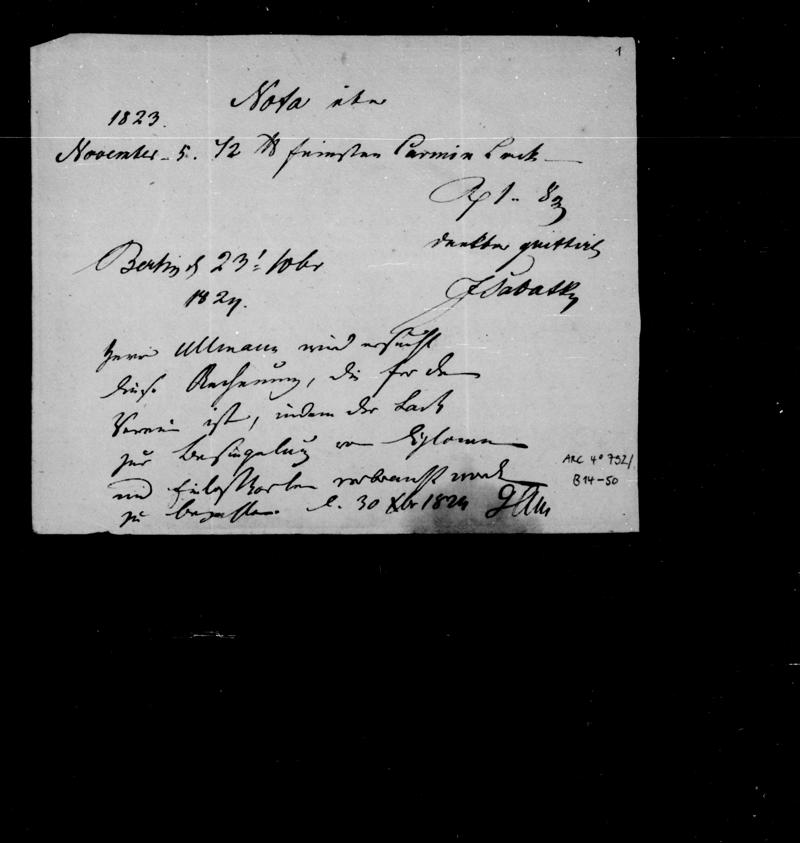 1
Nota über
1823.
November 5. 1/2 ℔ feinsten Carmin Lack
1.- 8
dankbar quittirt
Berlin d 23! 10br
1824.
JSabatky
Herr Ullmann wird ersucht
diese Rechnung, die für den
Verein ist, indem der Lack
zur Besiegelung von Diplomen
und Einlaßkarten verbraucht worden
zu bezahlen. d. 30 Xbr 1824
ARC 4° 792/
B14-50